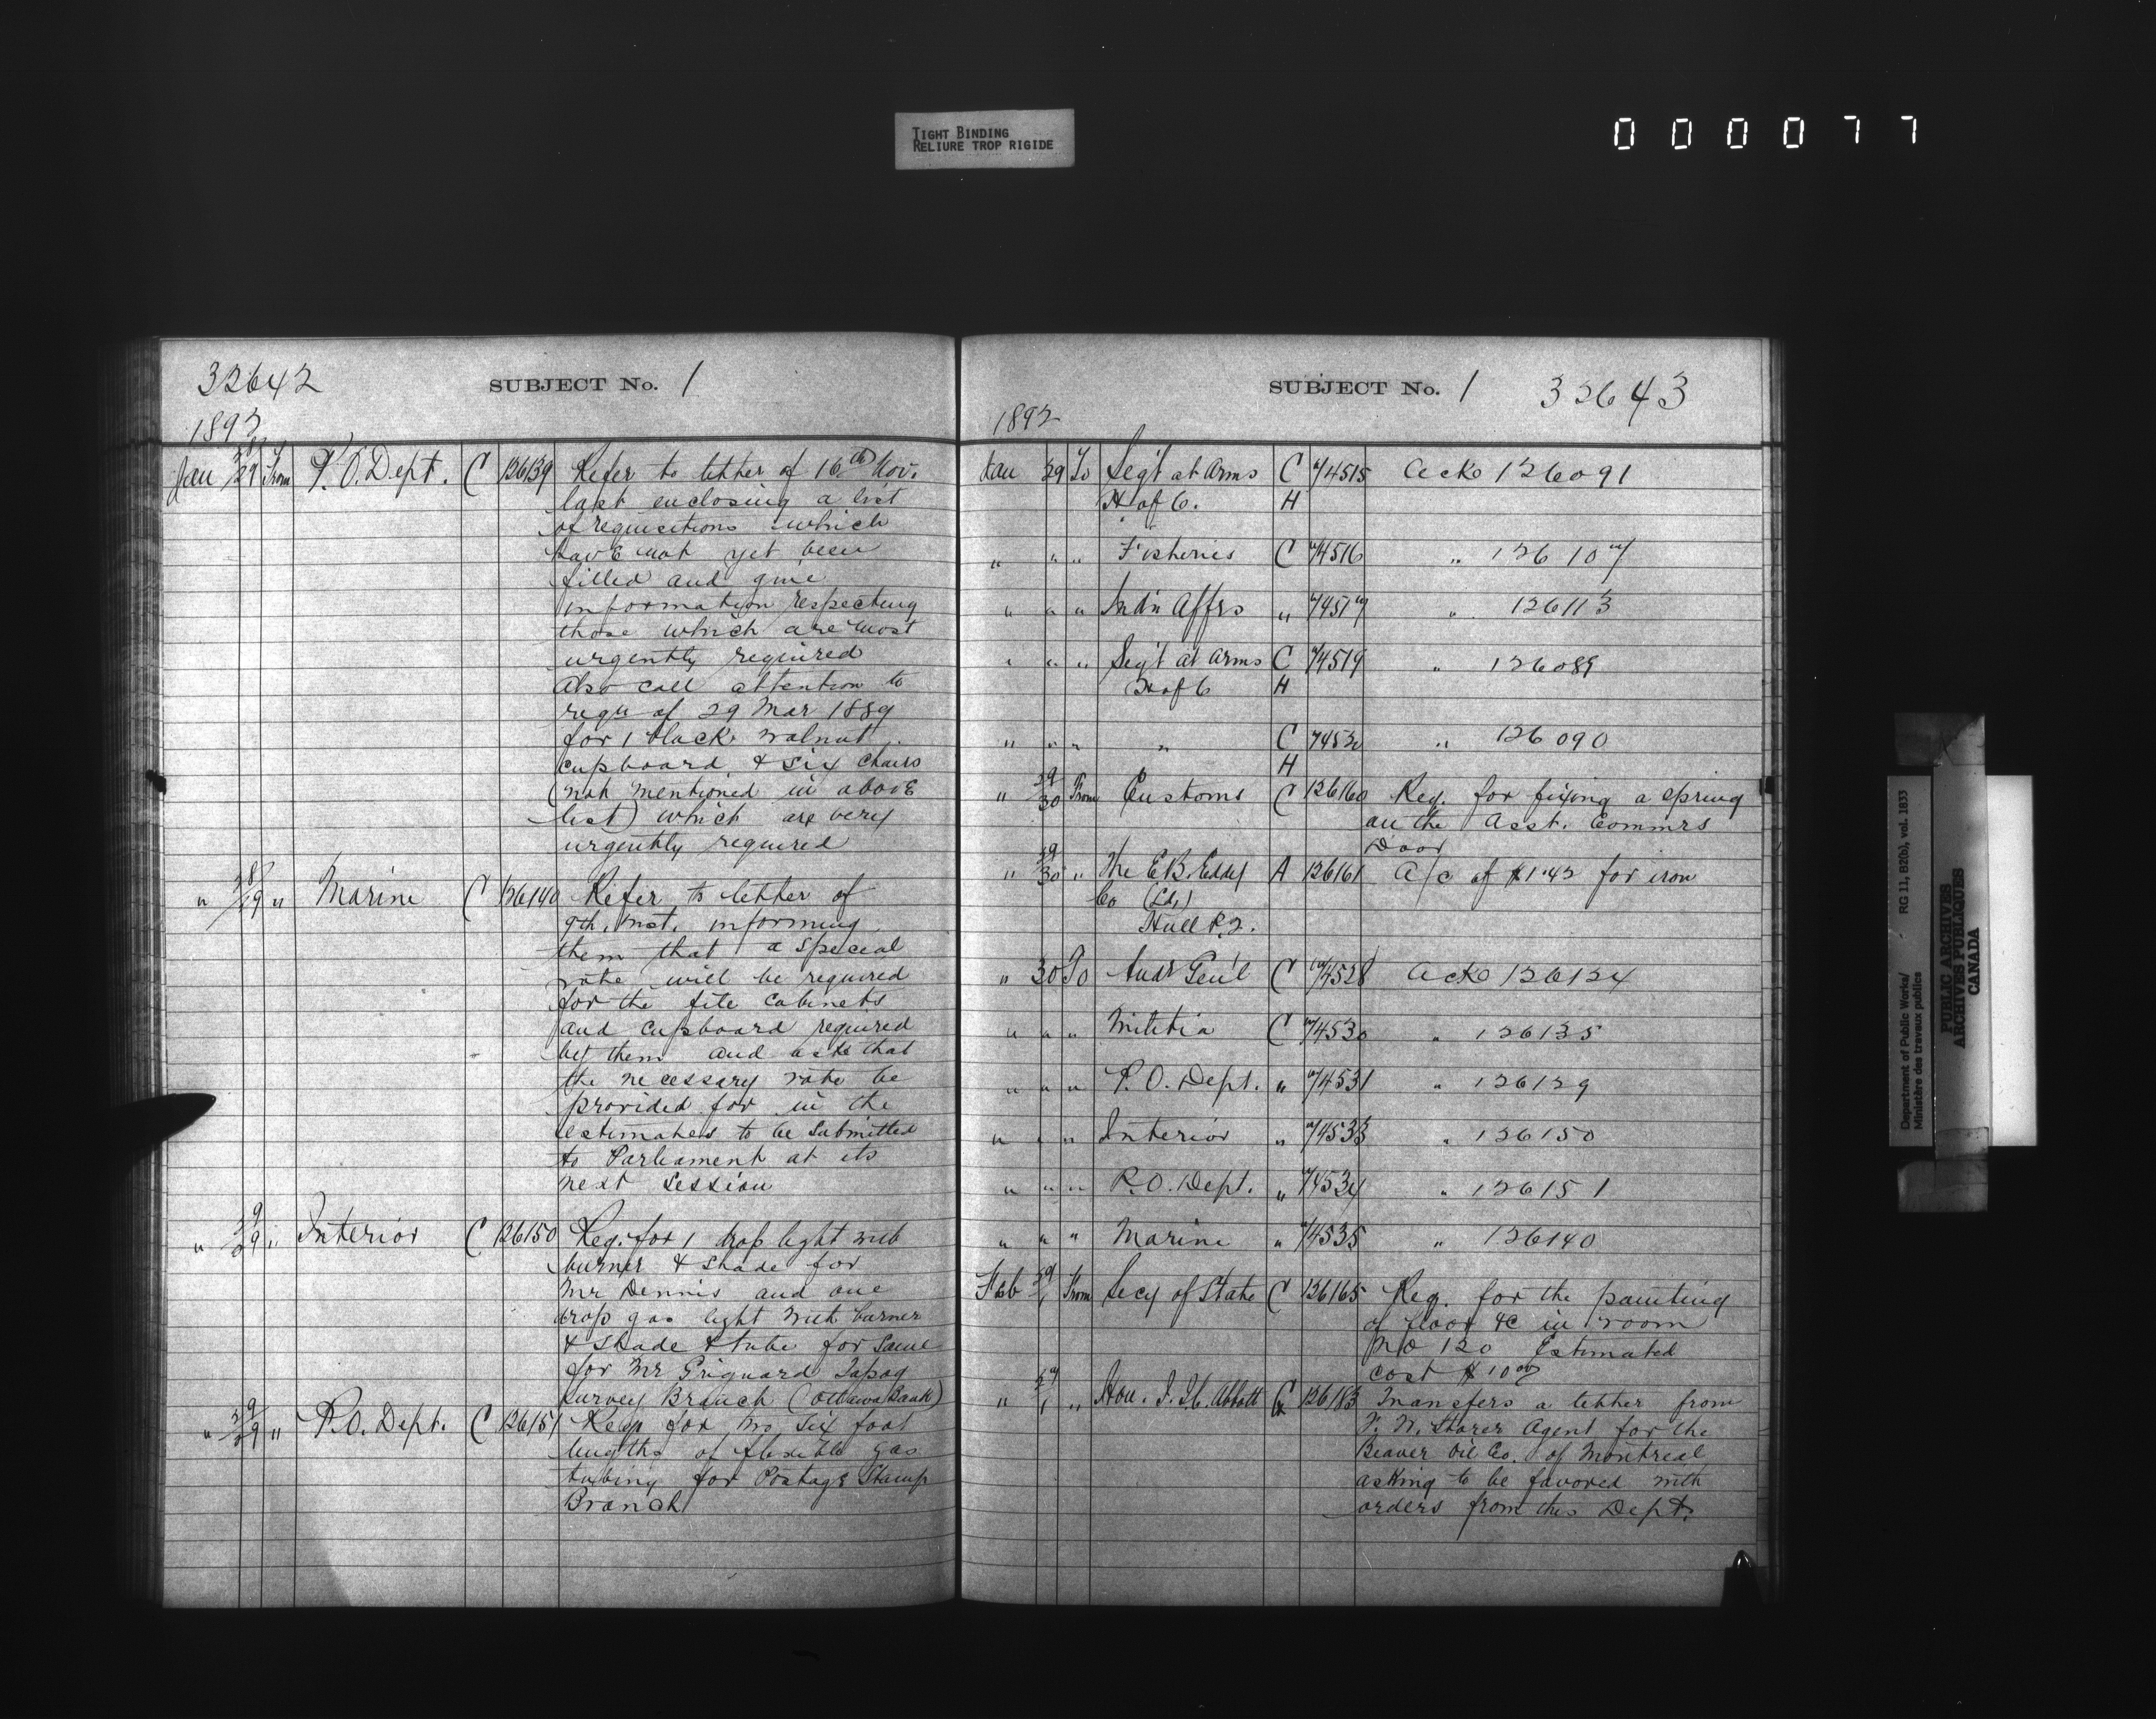 TIGHT BINDING
RELIURE TROP RIGIDE
000077
32642
SUBJECT No. 1
1892
Jan 28/29 From P.O. Dept. C 126139 Refer to letter of 16th Nov.
last enclosing a list
of requisitions which
have not yet been
filled and give
information respecting
those which are most
urgently required
Also call attention to
reqn of 29 Mar 1889
for 1 black walnut
cupboard & six chairs
(not mentioned in above
list) which are very
urgently required
" 28/29 " Marine C 126140 Refer to letter of
9th inst. informing
them that a special
vote will be required
for the file cabinets
and cupboard required
by them and asks that
the necessary vote be
provided for in the
estimates to be submitted
to Parliament at its
next session
" 29/29 " Interior C 126150 Req. for 1 drop light with
burner & shade for
Mr Dennis and one
drop gas light with burner
& shade & tube for same
for Mr Topog
Survey Branch (Ottawa Bank)
" 29/29 " P.O. Dept. C 126151 Reqn for two six foot
lengths of flexible gas
tubing for Postage Stamp
Branch
SUBJECT No. 1
32643
1892
Jan 29 To Seg't at Arms C 74515 Ackg 126091
H of C. H
" " " Fisheries C 74516 " 126107
" " " Ind'n Affrs " 74517 " 126113
" " " Seg't at Arms C 74519 " 126089
H of C H
" " " " C 7452 " 126090
H
" 29/30 From Customs C 126160 Req. for fixing a spring
on the Asst. Commrs
Door
" 29/30 " The E.B. Eddy A 126161 A/c of $1.42 for iron
Co (Ld.)
Hull P.Q.
" 30 To Aud Gen'l C 74528 Ackg 126124
" " " Militia C 74530 " 126135
" " " P.O. Dept. " 74531 " 126129
" " " Interior " 74533 " 126150
" " " P.O. Dept. " 74534 " 126151
" " " Marine " 74535 " 126140
Feb 29/1 From Secy of State C 126165 Req. for the painting
of floor &c in room
No 120 Estimated
cost $10.00
" 27/1 " Hon. J.J.C. Abbott 126183 Transfers a letter from
Storer Agent for the
Beaver Oil Co. of Montreal
asking to be favored with
orders from this Dept.
Department of Public Works/
Ministère des travaux publics
RG 11, B2(b), vol. 1833
PUBLIC ARCHIVES
ARCHIVES PUBLIQUES
CANADA